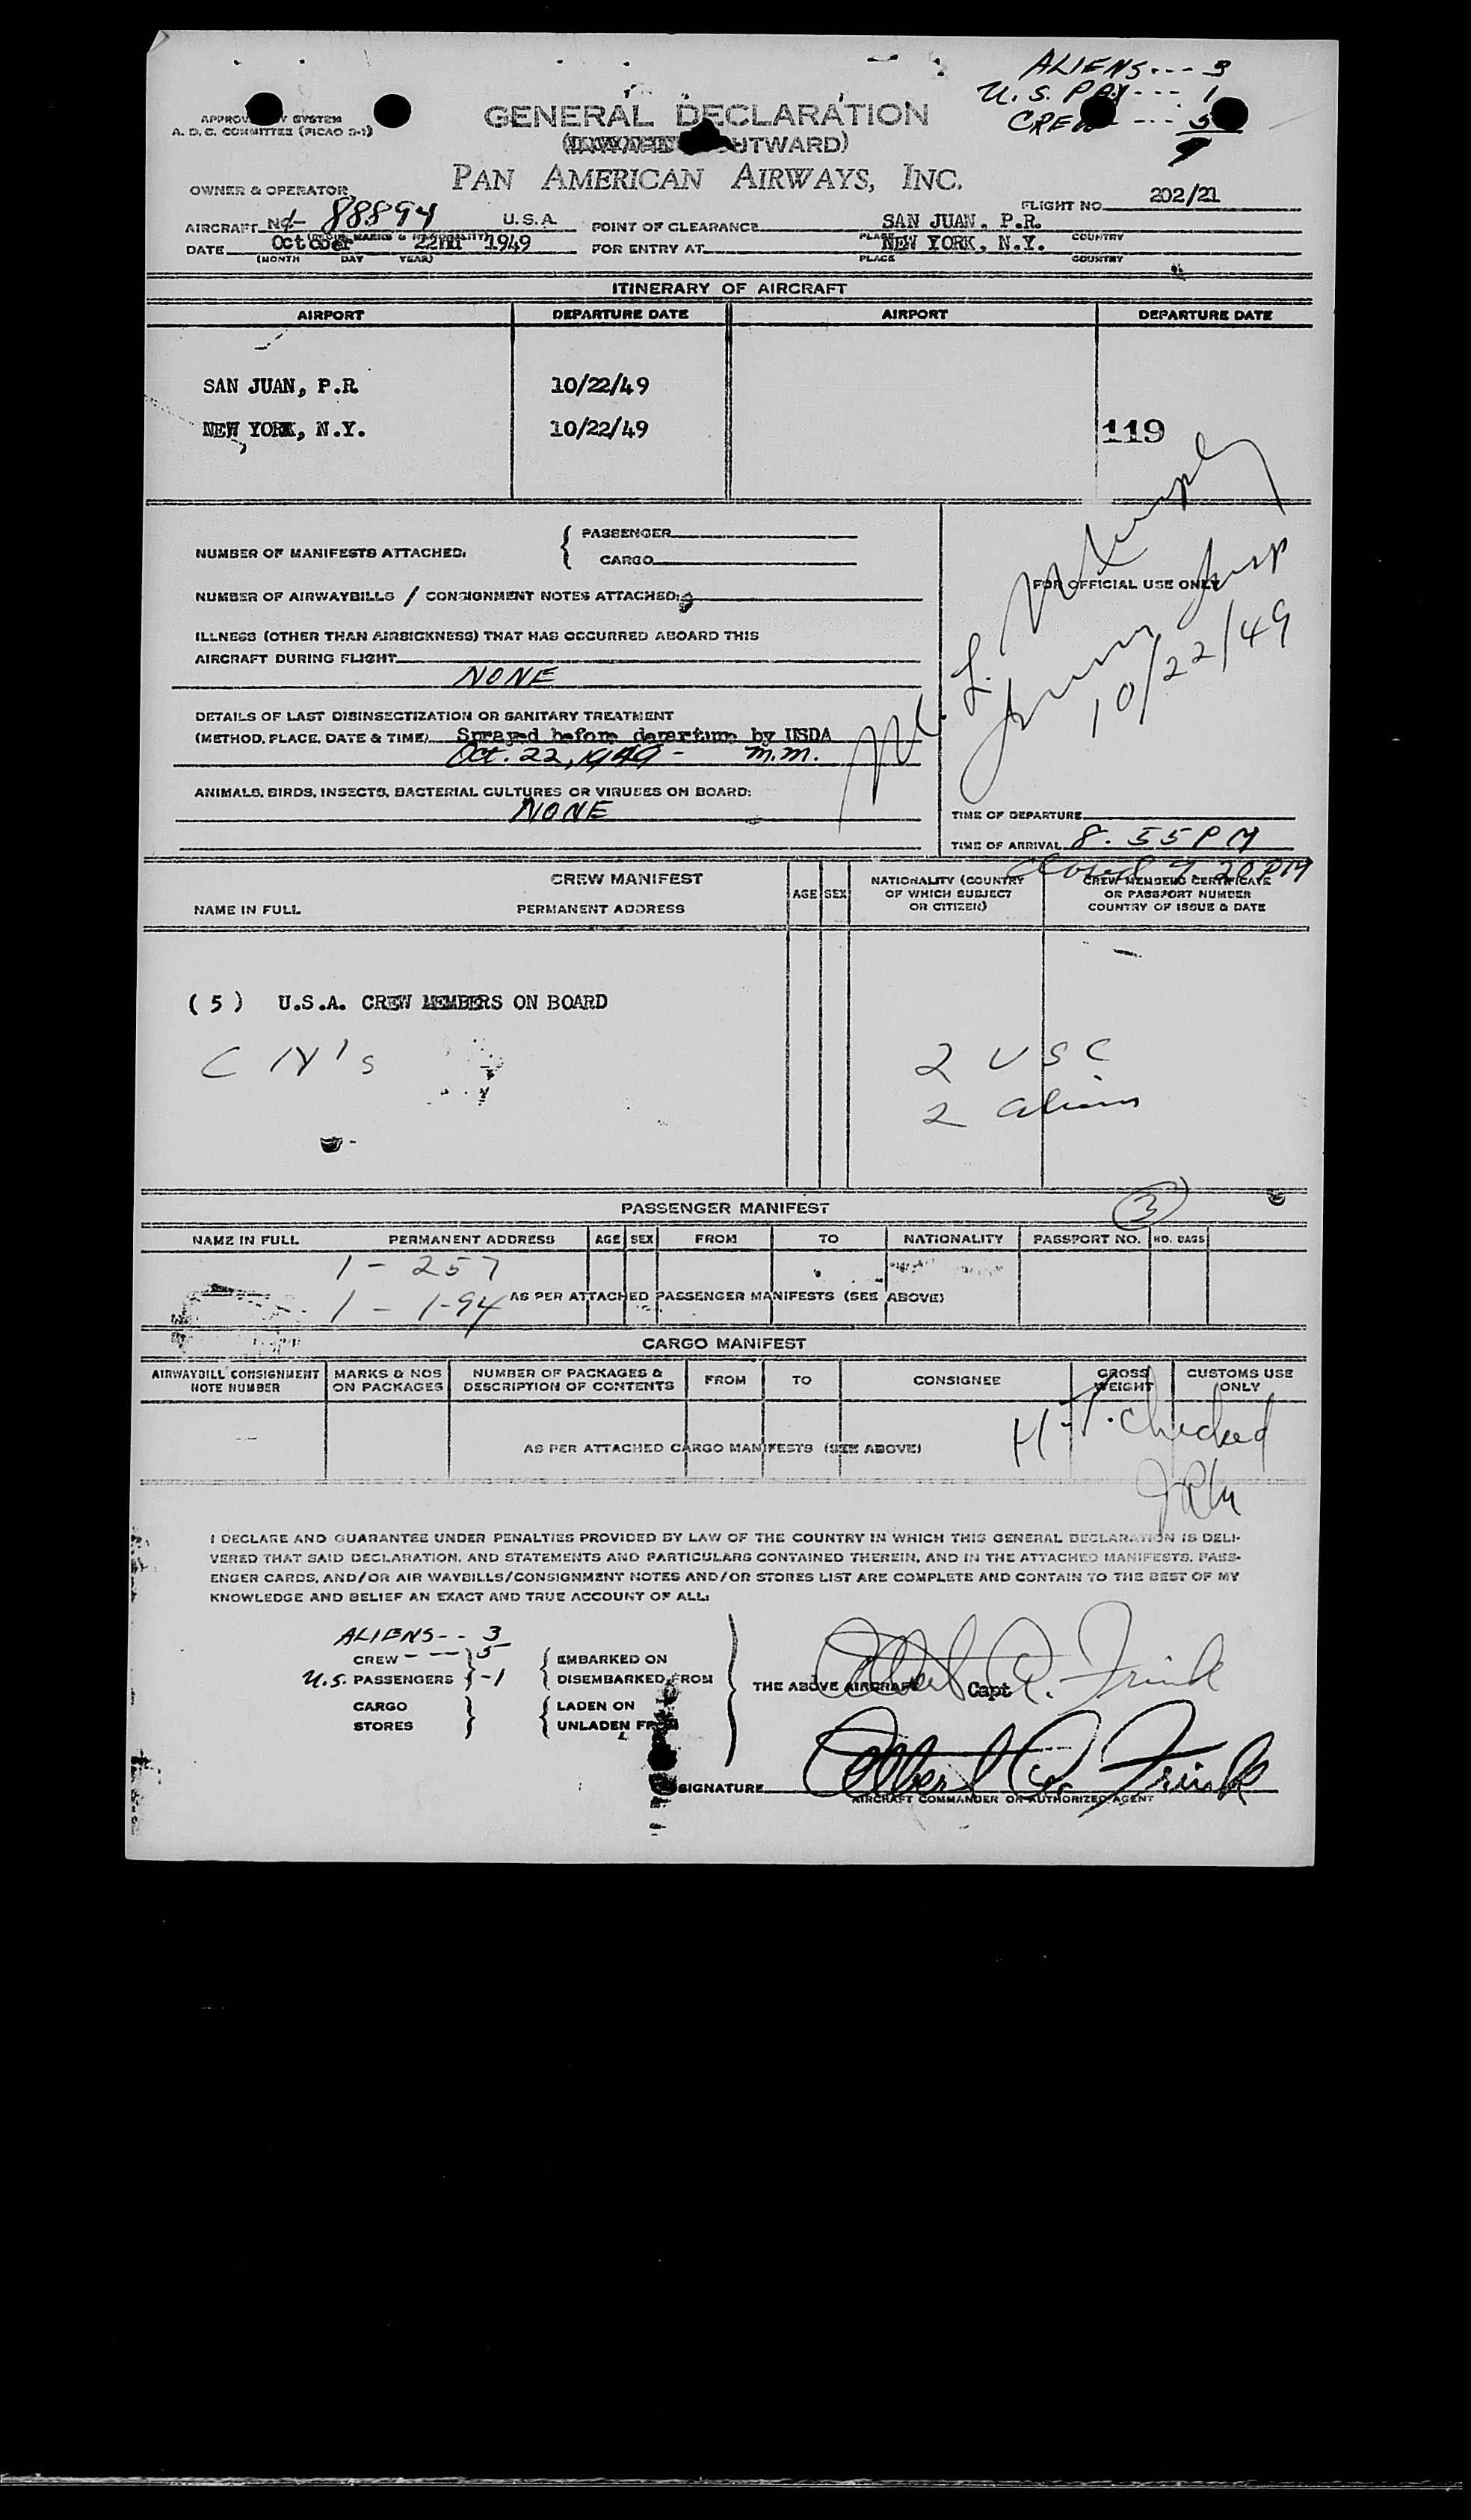 ALIENS --- 3
U.S. PAX --- 1
CREW --- 5
9
A. D. C. COMMITTEE (PICAO 2-1)
GENERAL DECLARATION
PAN AMERICAN AIRWAYS, INC.
OWNER & OPERATOR
FLIGHT NO. 202/21
AIRCRAFT 88894 U.S.A. POINT OF CLEARANCE SAN JUAN, P.R.
PLACE COUNTRY
DATE October 22nd 1949 FOR ENTRY AT NEW YORK, N.Y.
(MONTH DAY YEAR) PLACE COUNTRY
ITINERARY OF AIRCRAFT
AIRPORT DEPARTURE DATE AIRPORT DEPARTURE DATE
SAN JUAN, P.R. 10/22/49
NEW YORK, N.Y. 10/22/49
119
NUMBER OF MANIFESTS ATTACHED: { PASSENGER
CARGO
FOR OFFICIAL USE ONLY
10/22/49
NUMBER OF AIRWAYBILLS / CONSIGNMENT NOTES ATTACHED:
ILLNESS (OTHER THAN AIRSICKNESS) THAT HAS OCCURRED ABOARD THIS
AIRCRAFT DURING FLIGHT
NONE
DETAILS OF LAST DISINSECTIZATION OR SANITARY TREATMENT
(METHOD, PLACE, DATE & TIME) Sprayed before departure by USDA
Oct. 22, 1949 - M.M.
ANIMALS, BIRDS, INSECTS, BACTERIAL CULTURES OR VIRUSES ON BOARD:
NONE
TIME OF DEPARTURE
TIME OF ARRIVAL 8.55 PM
CREW MANIFEST
NAME IN FULL PERMANENT ADDRESS AGE SEX NATIONALITY (COUNTRY OF WHICH SUBJECT OR CITIZEN) CREW MEMBERS CERTIFICATE OR PASSPORT NUMBER COUNTRY OF ISSUE & DATE
(5) U.S.A. CREW MEMBERS ON BOARD
2 USC
2 aliens
PASSENGER MANIFEST
3
NAME IN FULL PERMANENT ADDRESS AGE SEX FROM TO NATIONALITY PASSPORT NO. NO. BAGS
1 - 257
1 - 1-94 AS PER ATTACHED PASSENGER MANIFESTS (SEE ABOVE)
CARGO MANIFEST
AIRWAYBILL CONSIGNMENT NOTE NUMBER MARKS & NOS ON PACKAGES NUMBER OF PACKAGES & DESCRIPTION OF CONTENTS FROM TO CONSIGNEE GROSS WEIGHT CUSTOMS USE ONLY
checked
AS PER ATTACHED CARGO MANIFESTS (SEE ABOVE)
I DECLARE AND GUARANTEE UNDER PENALTIES PROVIDED BY LAW OF THE COUNTRY IN WHICH THIS GENERAL DECLARATION IS DELI-
VERED THAT SAID DECLARATION, AND STATEMENTS AND PARTICULARS CONTAINED THEREIN, AND IN THE ATTACHED MANIFESTS, PASS-
ENGER CARDS, AND/OR AIR WAYBILLS/CONSIGNMENT NOTES AND/OR STORES LIST ARE COMPLETE AND CONTAIN TO THE BEST OF MY
KNOWLEDGE AND BELIEF AN EXACT AND TRUE ACCOUNT OF ALL:
ALIENS-- 3
CREW --- 5 EMBARKED ON
U.S. PASSENGERS -1 DISEMBARKED FROM
THE ABOVE AIRCRAFT Capt Albert A. Frink
CARGO LADEN ON
STORES UNLADEN FROM
SIGNATURE Albert A. Frink
AIRCRAFT COMMANDER OR AUTHORIZED AGENT